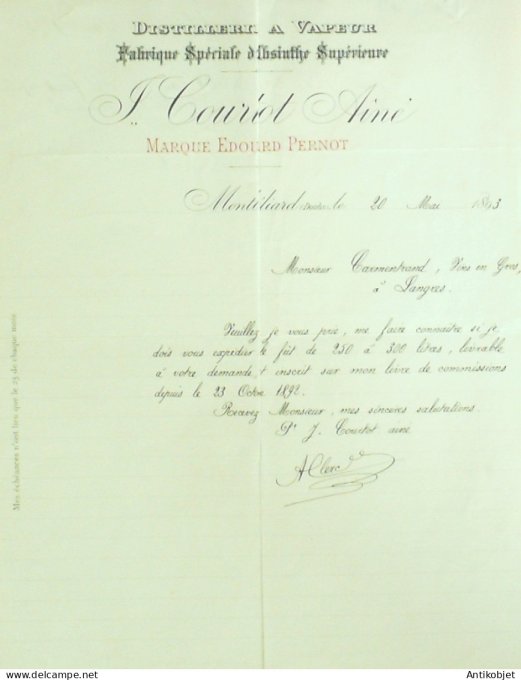 DISTILLERI. A VAPEUR
Fabrique Spéciale d'Absinthe Supérieure
J. Couriot Ainé
MARQUE EDOURD PERNOT
Montéliard (Doubs), le 20 Mai 1893
Monsieur Carmentrand, Vins en Gros,
à Langres.
Veuillez je vous prie, me faire connaître si je
dois vous expédier le fût de 250 à 300 litres, livrable
à votre demande, & inscrit sur mon livre de commissions
depuis le 23 Octre 1892.
Recevez Monsieur, mes sincères salutations.
Pr J. Couriot ainé
A Clerc
Mes échéances n'ont lieu que le 25 de chaque mois
© Antikobjet